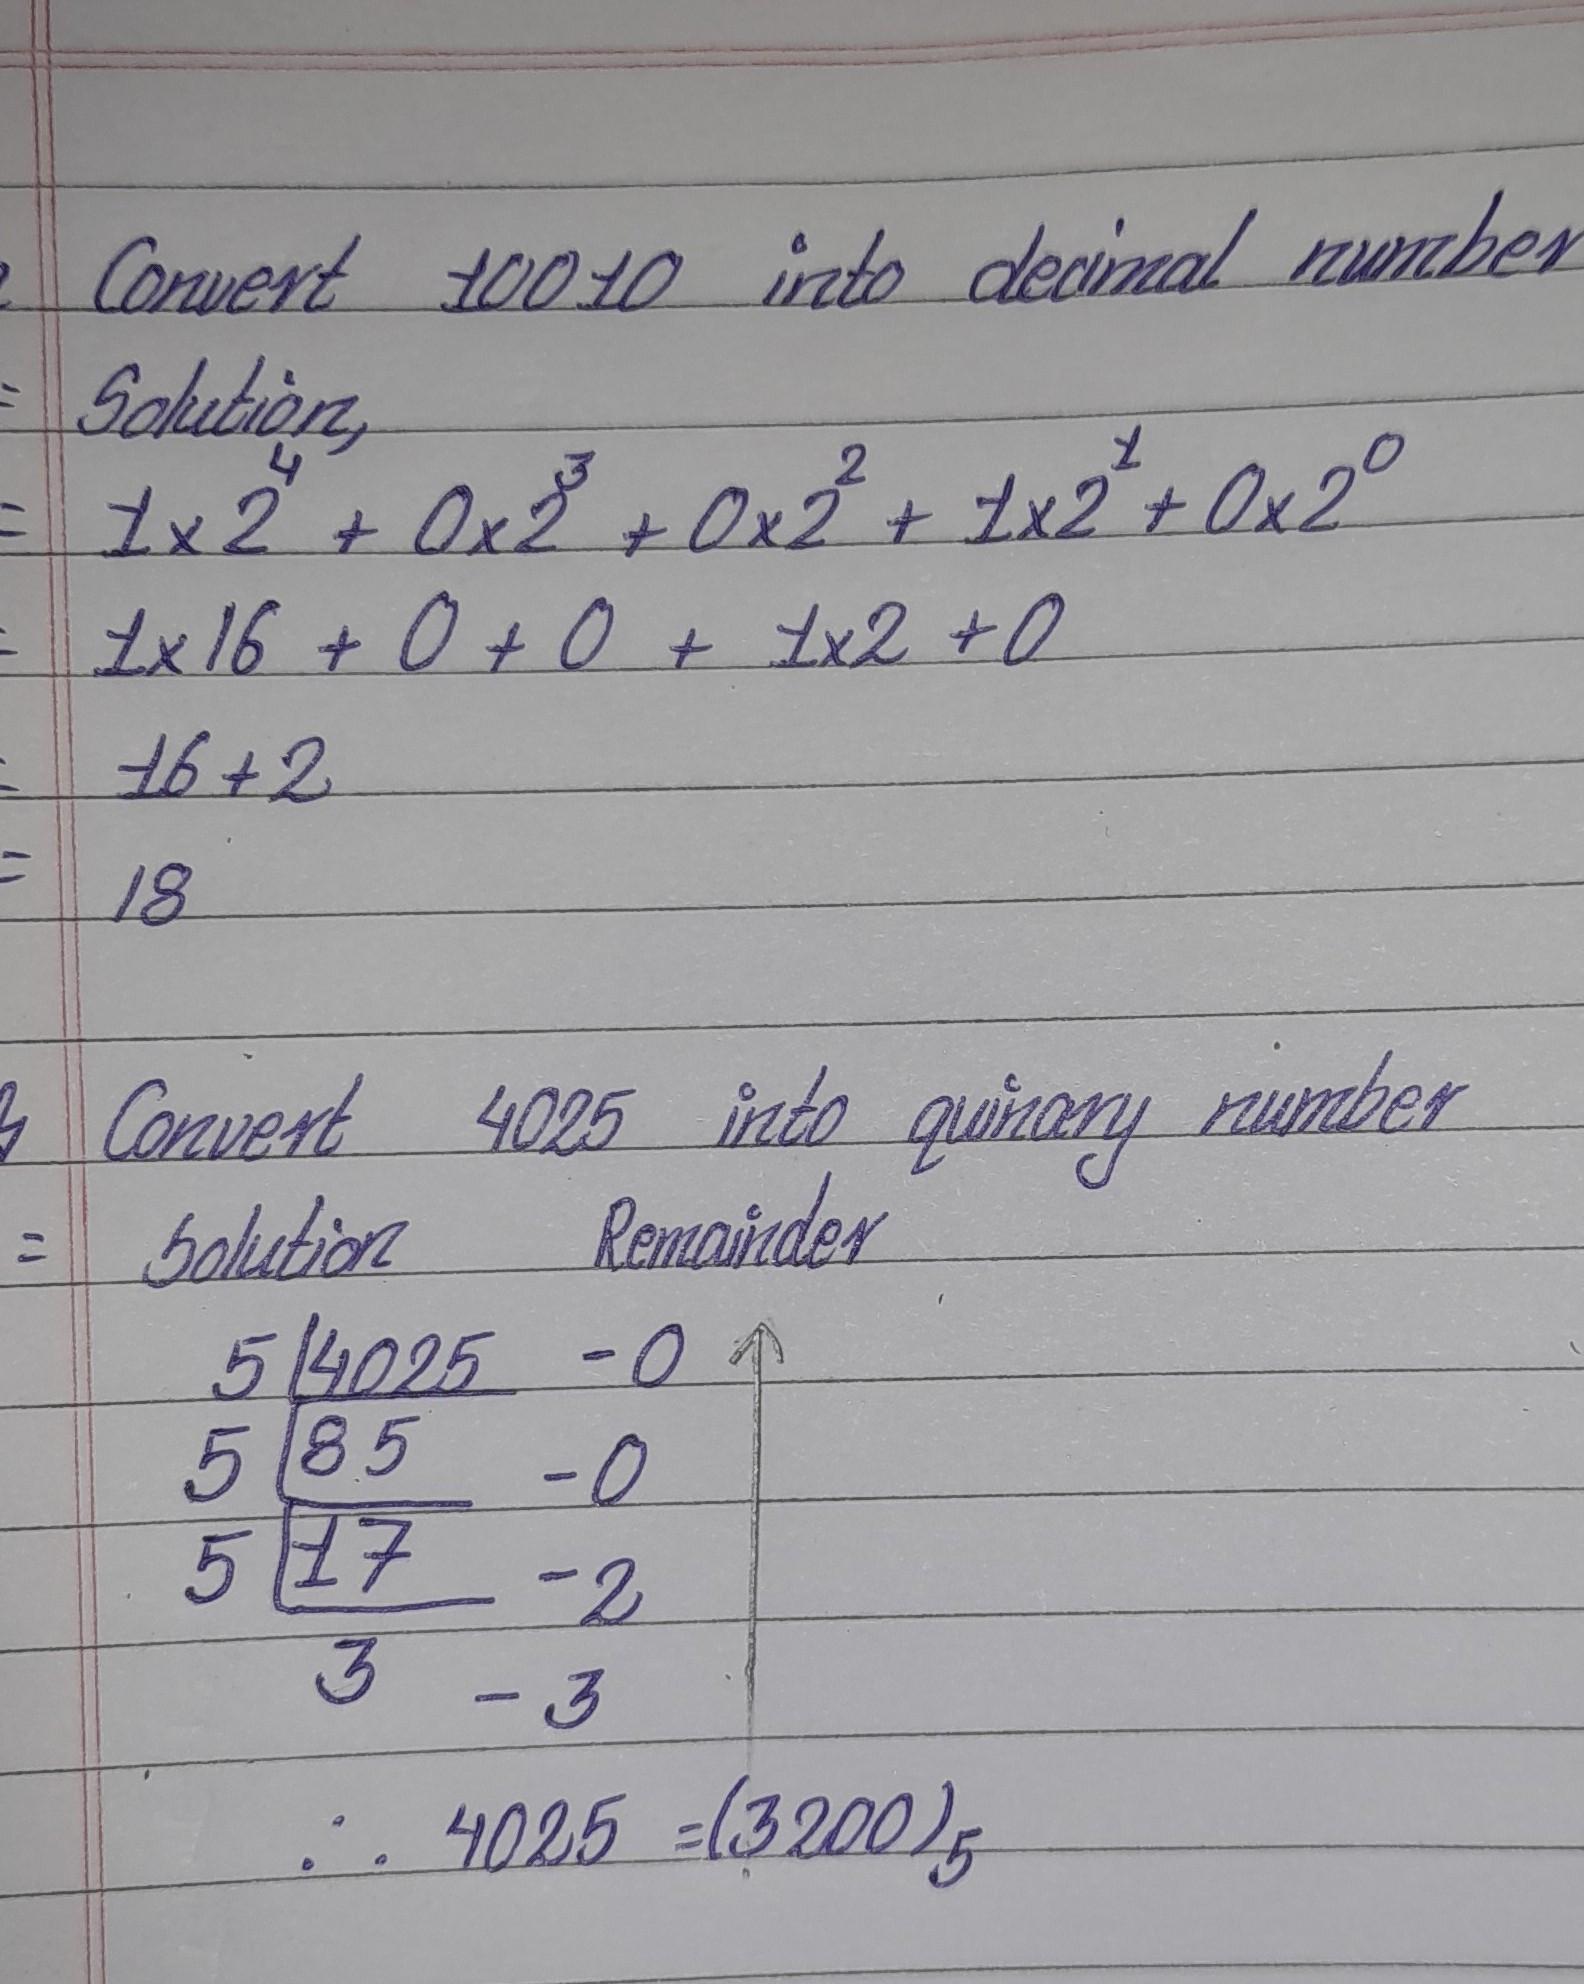 Convert 10010 into decimal number
= Solution,
= 1x2⁴ + 0x2³ + 0x2² + 1x2¹ + 0x2⁰
= 1x16 + 0 + 0 + 1x2 + 0
= 16+2
= 18
Convert 4025 into quinary number
= Solution Remainder
5 4025 - 0
5 85 - 0
5 17 - 2
3 - 3
∴ 4025 = (3200)₅